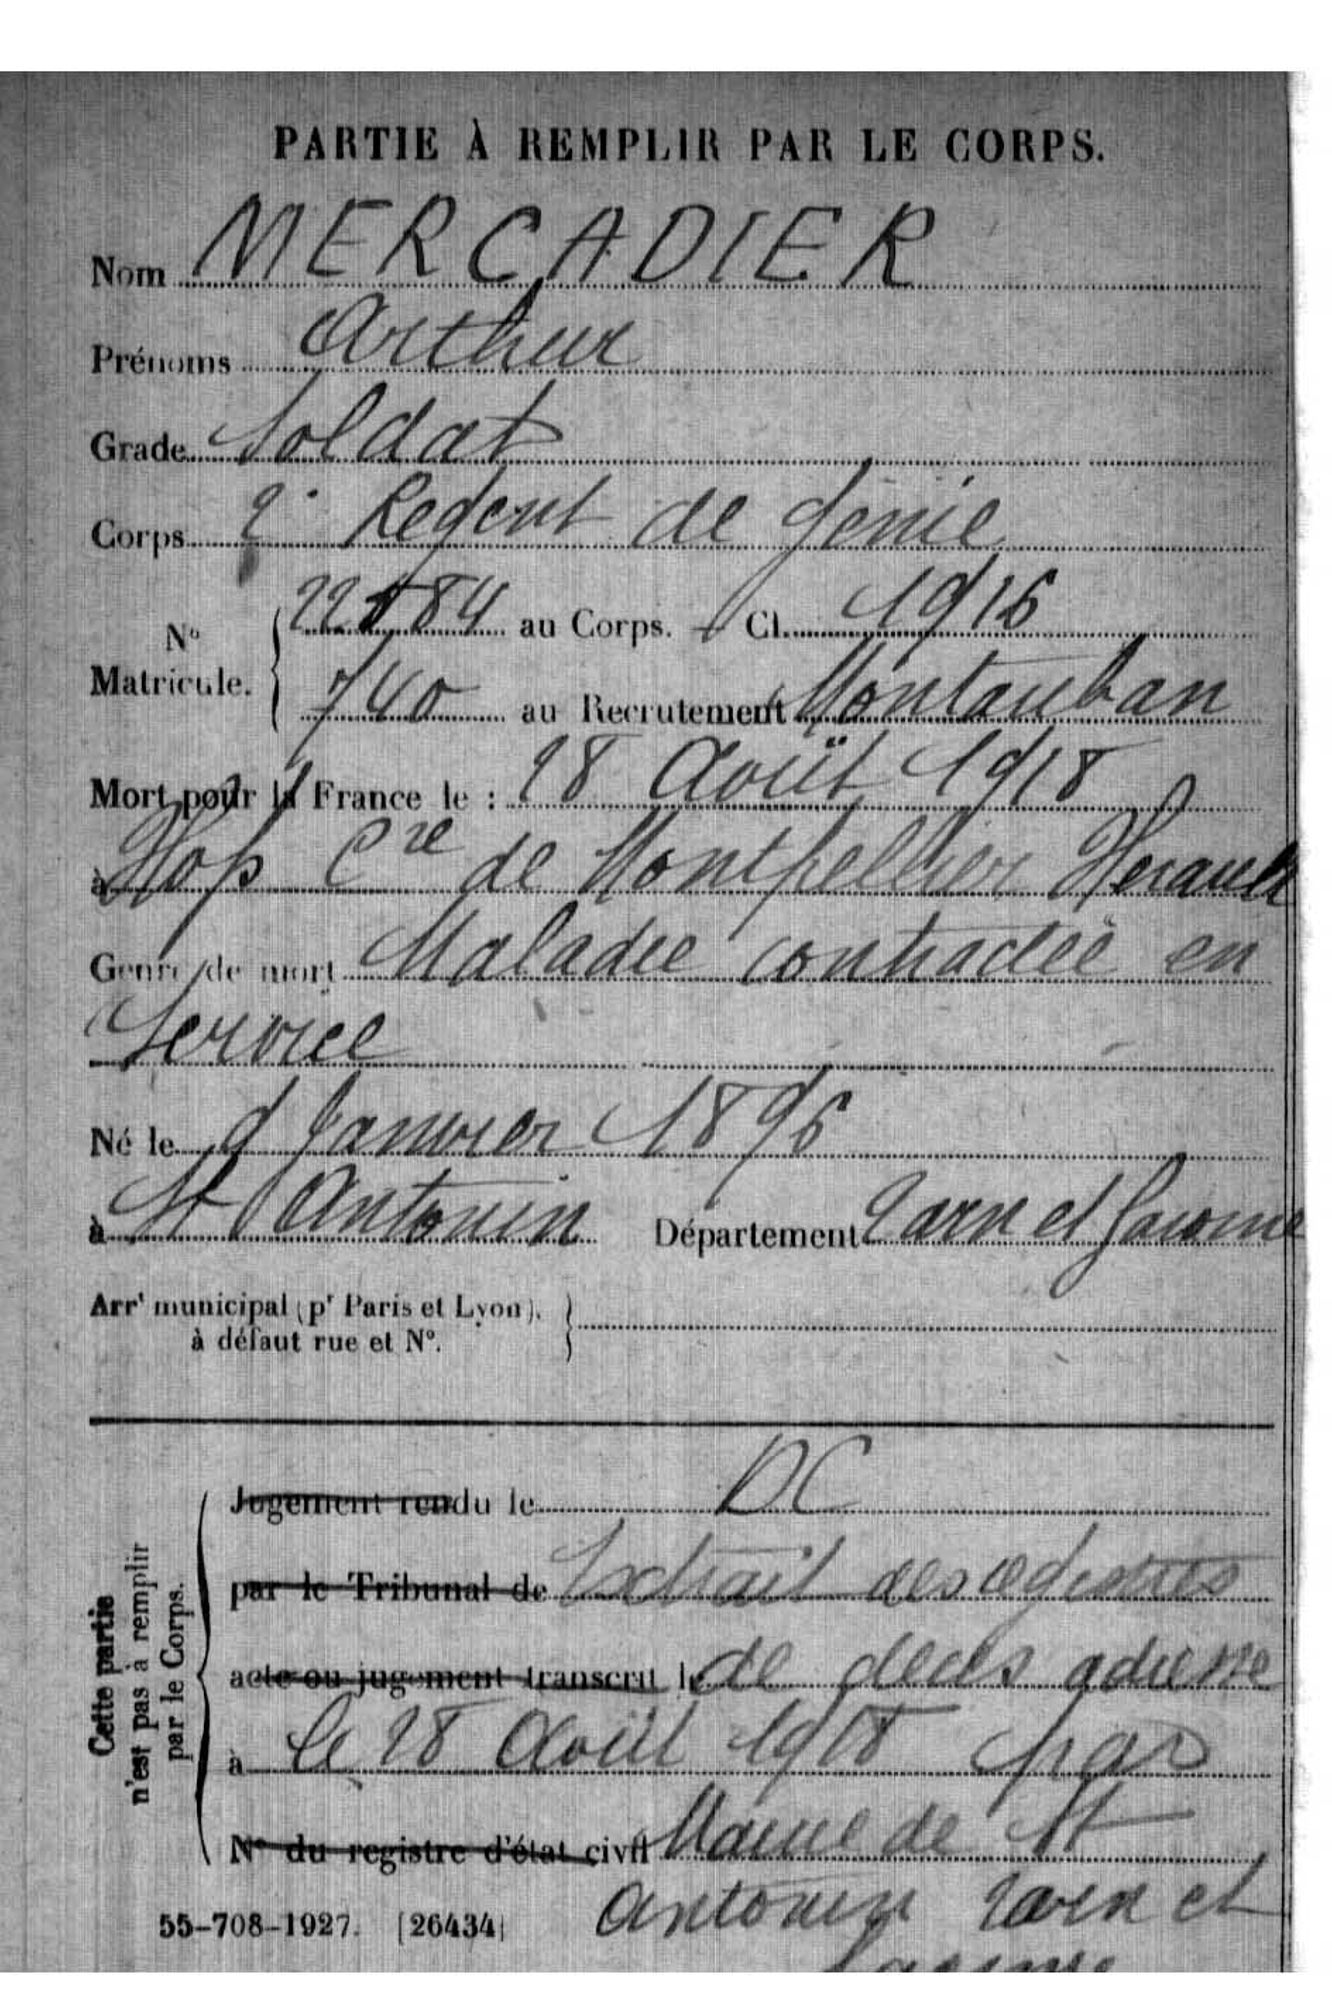 PARTIE À REMPLIR PAR LE CORPS.
Nom MERCADIER
Prénoms Arthur
Grade Soldat
Corps 2e Regent de Génie
No Matricule. 22184 au Corps. - Cl. 1916
740 au Recrutement Montauban
Mort pour la France le : 28 Août 1918
à Hop Cre de Montpellier Herault
Genre de mort Maladie contractée en
Service
Né le 9 Janvier 1896
à St Antonin Département Tarn et Garonne
Arrt municipal (pr Paris et Lyon),
à défaut rue et No.
Cette partie
n'est pas à remplir
par le Corps.
Jugement rendu le DC
par le Tribunal de Extrait des registres
acte ou jugement transcrit le de deces
à le 28 Août 1918 par
No du registre d'état civil Mairie de St
Antonin Tarn et
Garonne
55-708-1927. [26434]